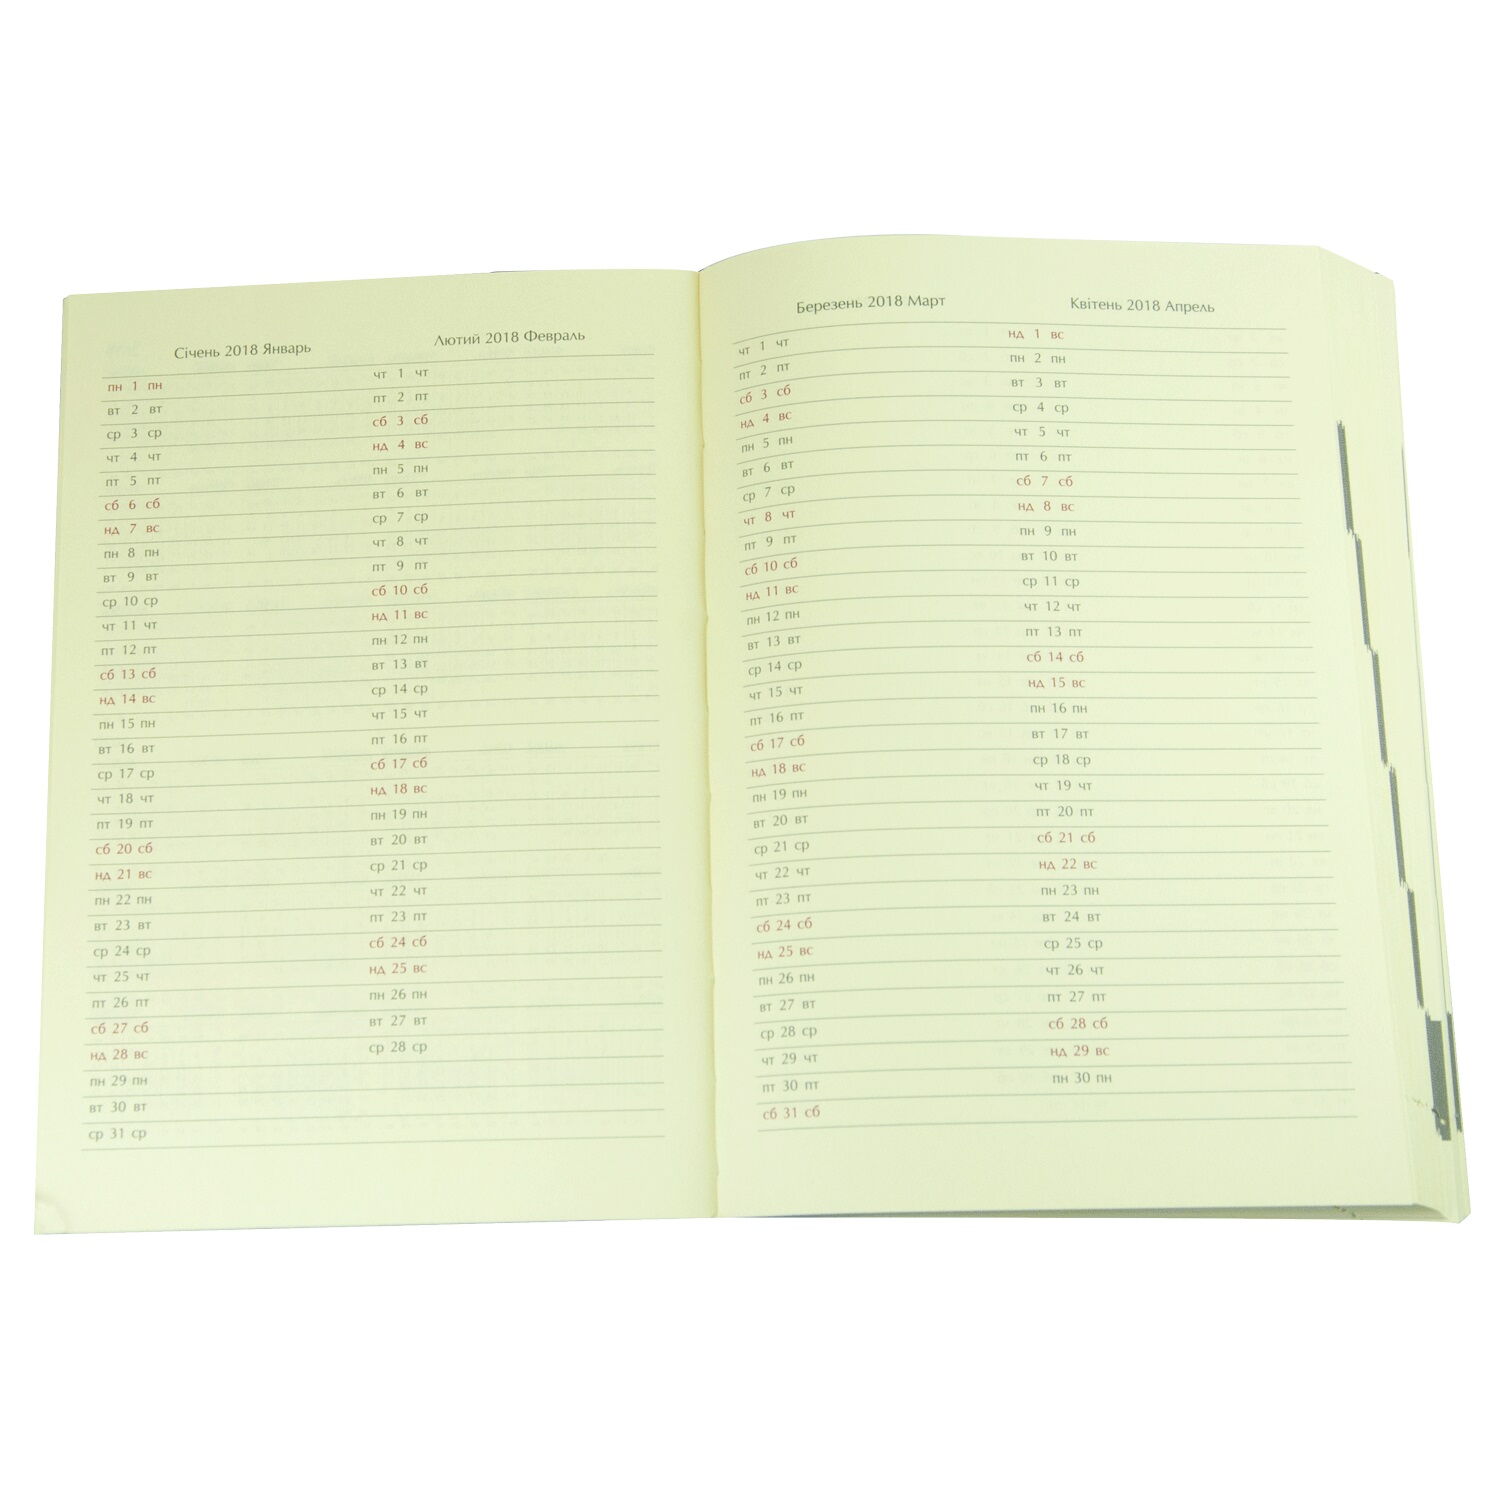 Січень 2018 Январь
пн 1 пн
вт 2 вт
ср 3 ср
чт 4 чт
пт 5 пт
сб 6 сб
нд 7 вс
пн 8 пн
вт 9 вт
ср 10 ср
чт 11 чт
пт 12 пт
сб 13 сб
нд 14 вс
пн 15 пн
вт 16 вт
ср 17 ср
чт 18 чт
пт 19 пт
сб 20 сб
нд 21 вс
пн 22 пн
вт 23 вт
ср 24 ср
чт 25 чт
пт 26 пт
сб 27 сб
нд 28 вс
пн 29 пн
вт 30 вт
ср 31 ср
Лютий 2018 Февраль
чт 1 чт
пт 2 пт
сб 3 сб
нд 4 вс
пн 5 пн
вт 6 вт
ср 7 ср
чт 8 чт
пт 9 пт
сб 10 сб
нд 11 вс
пн 12 пн
вт 13 вт
ср 14 ср
чт 15 чт
пт 16 пт
сб 17 сб
нд 18 вс
пн 19 пн
вт 20 вт
ср 21 ср
чт 22 чт
пт 23 пт
сб 24 сб
нд 25 вс
пн 26 пн
вт 27 вт
ср 28 ср
Березень 2018 Март
чт 1 чт
пт 2 пт
сб 3 сб
нд 4 вс
пн 5 пн
вт 6 вт
ср 7 ср
чт 8 чт
пт 9 пт
сб 10 сб
нд 11 вс
пн 12 пн
вт 13 вт
ср 14 ср
чт 15 чт
пт 16 пт
сб 17 сб
нд 18 вс
пн 19 пн
вт 20 вт
ср 21 ср
чт 22 чт
пт 23 пт
сб 24 сб
нд 25 вс
пн 26 пн
вт 27 вт
ср 28 ср
чт 29 чт
пт 30 пт
сб 31 сб
Квітень 2018 Апрель
нд 1 вс
пн 2 пн
вт 3 вт
ср 4 ср
чт 5 чт
пт 6 пт
сб 7 сб
нд 8 вс
пн 9 пн
вт 10 вт
ср 11 ср
чт 12 чт
пт 13 пт
сб 14 сб
нд 15 вс
пн 16 пн
вт 17 вт
ср 18 ср
чт 19 чт
пт 20 пт
сб 21 сб
нд 22 вс
пн 23 пн
вт 24 вт
ср 25 ср
чт 26 чт
пт 27 пт
сб 28 сб
нд 29 вс
пн 30 пн